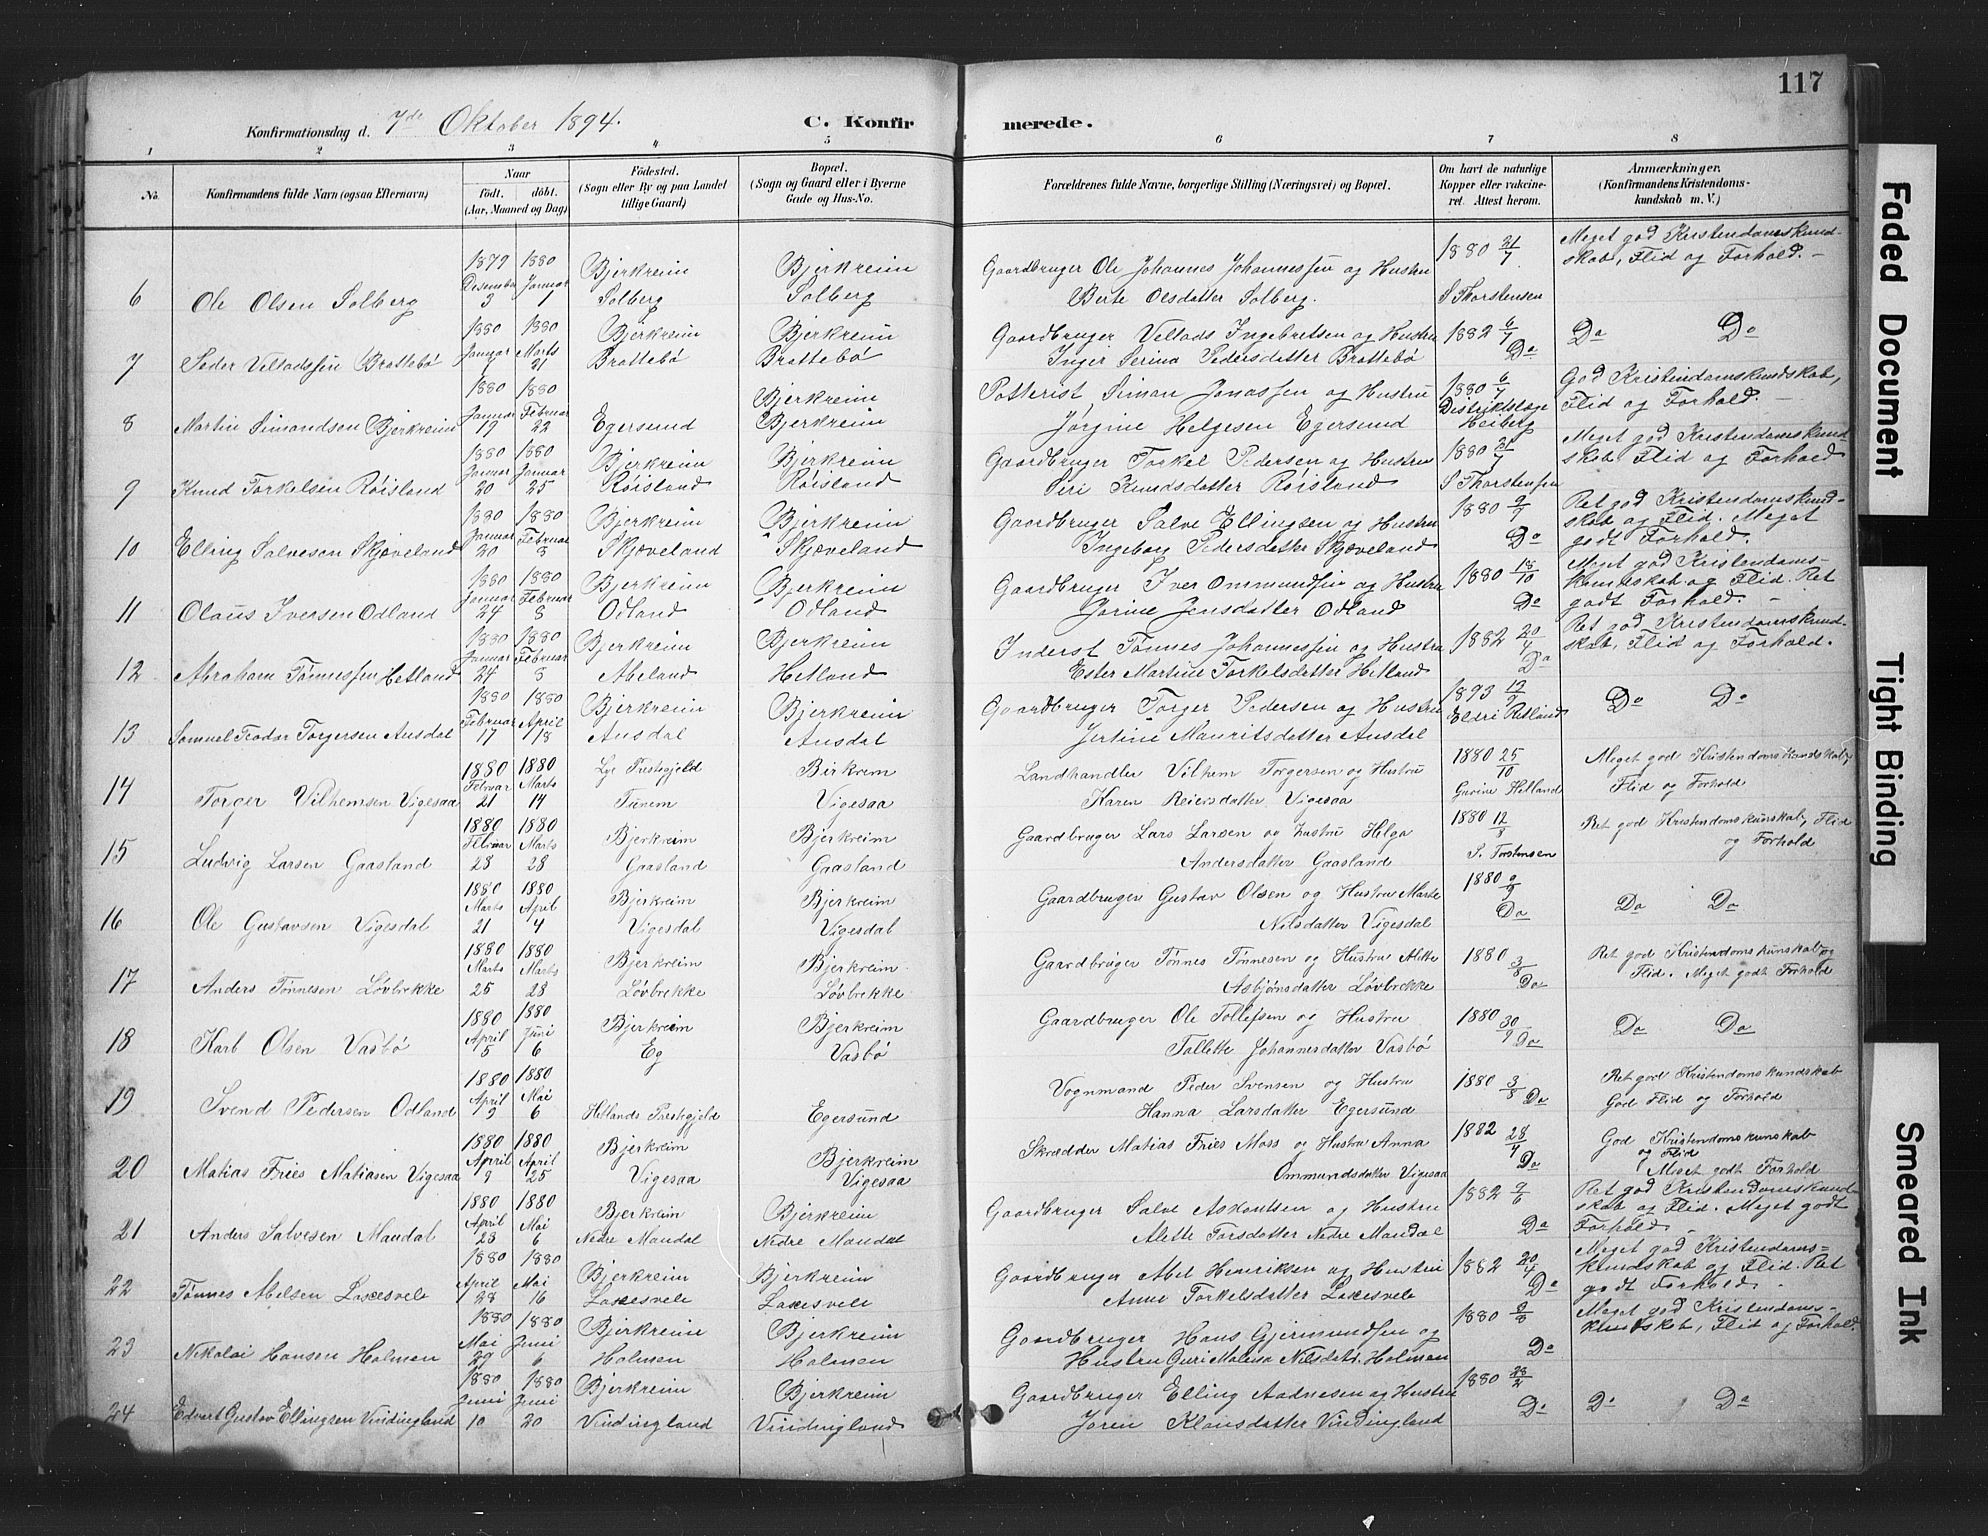 117
Konfirmationsdag d. 7de Oktober 1894.
C. Konfirmerede.
1 2 3 4 5 6 7 8
No.
Konfirmandens fulde Navn (ogsaa Efternavn)
Naar
født. døbt.
(Aar, Maaned og Dag)
Fødested.
(Sogn eller By og paa Landet
tillige Gaard)
Bopæl.
(Sogn og Gaard eller i Byerne
Gade og Hus-No.
Forældrenes fulde Navne, borgerlige Stilling (Næringsvei) og Bopæl.
Om havt de naturlige
Kopper eller vaccine-
ret. Attest herom.
Anmærkninger.
(Konfirmandens Kristendoms-
kundskab m. V.)
6 Ole Olsen Solberg
1879 Desember 3
1880 Januar 1
Bjerkreim Solberg
Bjerkreim Solberg
Gaardbruger Ole Johannes Johannessen og Hustru
Berte Olsdatter Solberg.
1880 21/7 S Thorstensen
Meget god Kristendomskund-
skab, Flid og Forhold. -
7 Peder Velladssen Brattebø
1880 Januar 7
1880 Marts 21
Bjerkreim Brattebø
Bjerkreim Brattebø
Gaardbruger Vellads Ingebretsen og Hustru
Inger Serina Pedersdatter Brattebø
1882 6/7 Do
Do Do
8 Martin Simondsen Bjerkreim
1880 Januar 19
1880 Februar 22
Egersund
Bjerkreim Bjerkreim
Potterist Simon Jonassen og Hustru
Jørgine Helgesen Egersund
1880 6/7 Distriktslæge Heiberg
God Kristendomskundskab,
Flid og Forhold. -
9 Knud Torkelsen Røisland
1880 Januar 20
1880 Januar 25
Bjerkreim Røisland
Bjerkreim Røisland
Gaardbruger Torkel Pedersen og Hustru
Siri Knudsdatter Røisland
1880 21/7 S Thorstensen
Meget god Kristendomskund-
skab Flid og Forhold
10 Elling Salvesen Skjæveland
1880 Januar 20
1880 Februar 8
Bjerkreim Skjæveland
Bjerkreim Skjæveland
Gaardbruger Salve Ellingsen og Hustru
Ingeborg Pedersdatter Skjæveland
1880 9/9 Do
Ret god Kristendomskund-
skab og Flid. Meget
godt Forhold.
11 Olaus Iversen Odland
1880 Januar 24
1880 Februar 8
Bjerkreim Odland
Bjerkreim Odland
Gaardbruger Iver Ommundsen og Hustru
Jorine Jensdatter Odland
1880 18/10 Do
Meget god Kristendoms-
kundskab og Flid. Ret
godt Forhold. -
12 Abraham Tønnessen Hetland
1880 Januar 24
1880 Februar 8
Bjerkreim Abeland
Bjerkreim Hetland
Inderst Tønnes Johannessen og Hustru
Ester Martine Torkelsdatter Hetland
1882 20/4 Do
Ret god Kristendomskund-
skab, Flid og Forhold.
13 Samuel Teodor Torgersen Ausdal
1880 Februar 17
1880 April 18
Bjerkreim Ausdal
Bjerkreim Ausdal
Gaardbruger Torger Pedersen og Hustru
Jertine Mauritsdatter Ausdal
1893 12/9 Eldri Retland
Do Do
14 Torger Vilhemsen Vigesaa
1880 Februar 21
1880 Marts 14
Lye Prestegjeld Tunem
Birkrem Vigesaa
Landhandler Vilhem Torgersen og Hustru
Karen Reiersdatter Vigesaa
1880 25/10 Gurine Hetland
Meget god Kristendomskundskab,
Flid og Forhold
15 Ludvig Larsen Gaasland
1880 Februar 23
1880 Marts 28
Bjerkreim Gaasland
Bjerkreim Gaasland
Gaardbruger Lars Larsen og Hustru Helga
Andersdatter Gaasland
1880 12/9 S. Torstensen
Ret god Kristendomskunskab, Flid
og Forhold
16 Ole Gustavsen Vigesdal
1880 Marts 21
1880 April 4
Bjerkreim Vigesdal
Bjerkreim Vigesdal
Gaardbruger Gustav Olsen og Hustru Marte
Nilsdatter Vigesdal
1880 9/9 Do
Do Do
17 Anders Tønnesen Løvbrekke
1880 Marts 25
1880 Marts 28
Bjerkreim Løvbrekke
Bjerkreim Løvbrekke
Gaardbruger Tønnes Tønnesen og Hustru Alette
Asbjønsdatter Løvbrekke
1880 3/8 Do
Ret god Kristendomskunskab og
Flid. Meget godt Forhold
18 Karl Olsen Vasbø
1880 April 5
1880 Juni 6
Bjerkreim Eg
Bjerkreim Vasbø
Gaardbruger Ole Tollefsen og Hustru
Tallette Johannesdatter Vasbø
1880 30/9 Do
Do Do
19 Svend Pedersen Odland
1880 April 9
1880 Mai 6
Hetlands Prestegjeld
Egersund
Vognmand Peder Svensen og Hustru
Hanna Larsdatter Egersund
1880 3/8 Do
Ret god Kristendomskundskab
God Flid og Forhold
20 Matias Fries Matiasen Vigesaa
1880 April 9
1880 April 25
Bjerkreim Vigesaa
Bjerkreim Vigesaa
Skrædder Matias Fries Moss og Hustru Anna
Ommundsdatter Vigesaa
1882 28/4 Do
God Kristendomskunskab
og Flid
Meget godt Forhold
21 Anders Salvesen Maudal
1880 April 23
1880 Mai 6
Bjerkreim Nedre Maudal
Bjerkreim Nedre Maudal
Gaardbruger Salve Askoutsen og Hustru
Alette Torsdatter Nedre Maudal
1882 9/6 Do
Ret god Kristendomskund-
skab og Flid. Meget godt
Forhold -
22 Tønnes Abelsen Laxesvele
1880 April 28
1880 Mai 16
Bjerkreim Laxesvele
Bjerkreim Laxesvele
Gaardbruger Abel Henriksen og Hustru
Anne Torkelsdatter Laxesvele
1882 20/4 Do
Meget god Kristendoms-
kundskab og Flid. Ret
godt Forhold. -
23 Nikolai Hansen Holmen
1880 Mai 29
1880 Juni 6
Bjerkreim Holmen
Bjerkreim Holmen
Gaardbruger Hans Gjermundsen og
Hustru Guri Malena Nilsdatr. Holmen
1880 8/8 Do
Meget god Kristendoms-
kundskab, Flid og Forhold.
24 Edvart Gustav Ellingsen Vindingland
1880 Juni 10
1880 Juni 20
Bjerkreim Vindingland
Bjerkreim Vindingland
Gaardbruger Elling Aadnesen og Hustru
Joren Klausdatter Vindingland
1880 23/2 Do
Do Do
Faded Document
Tight Binding
Smeared Ink